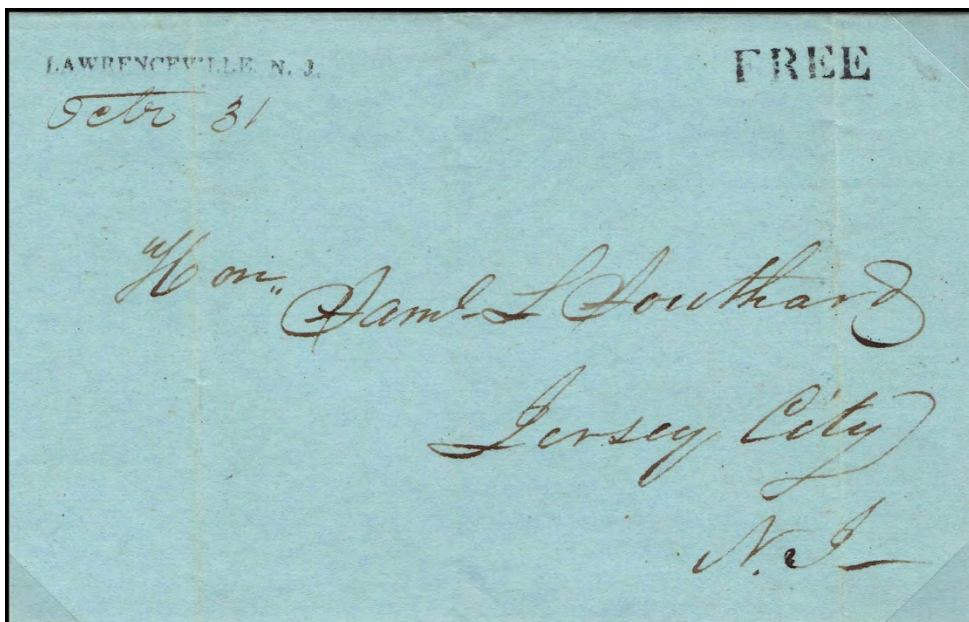 LAWRENCEVILLE. N. J.
FREE
Octr 31
Hon,, Saml. L Southard
Jersey City
N. J